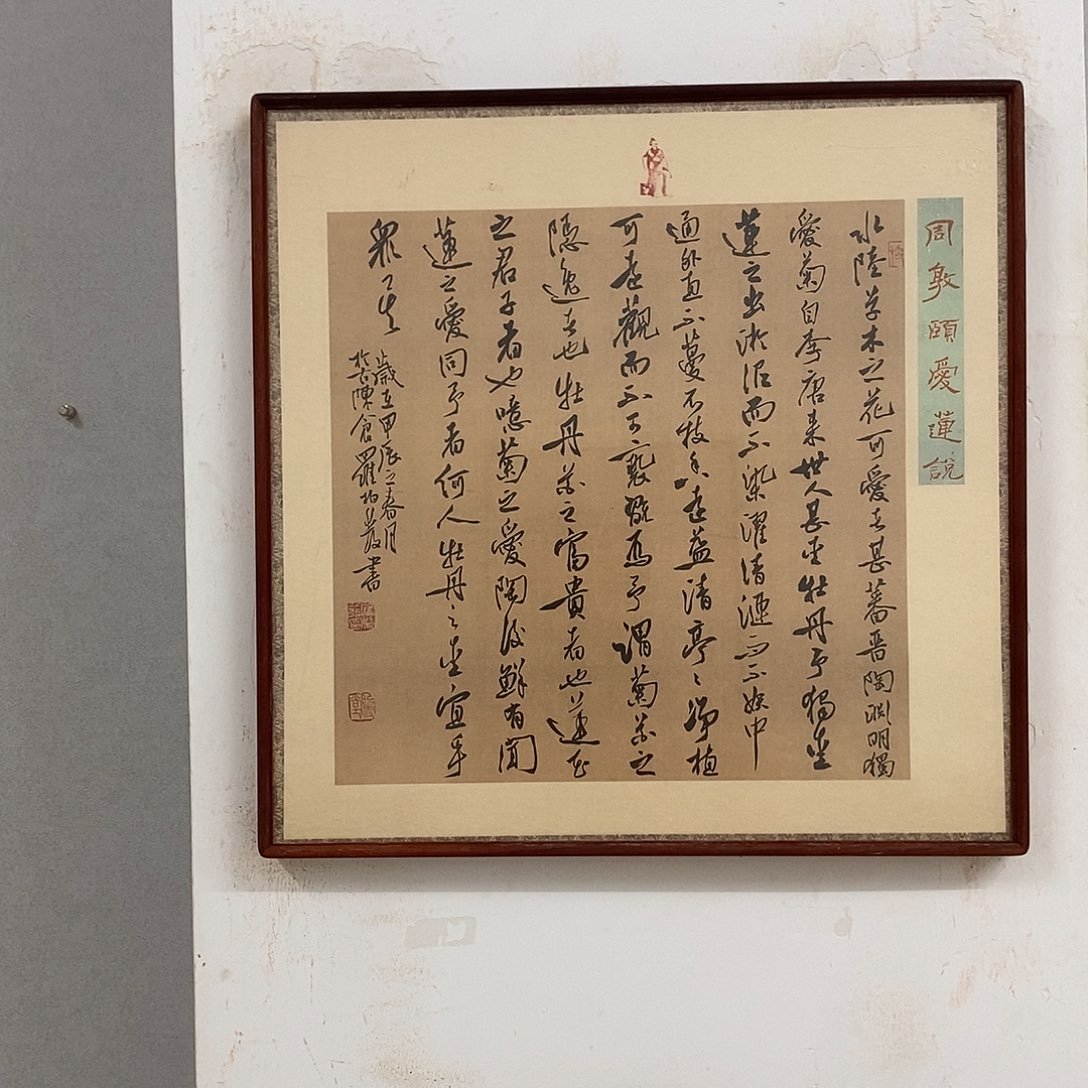 周敦頤愛蓮說
水陸草木之花可愛者甚蕃晉陶淵明獨
愛菊自李唐来世人甚愛牡丹予獨愛
蓮之出淤泥而不染濯清漣而不妖中
通外直不蔓不枝香遠益清亭々净植
可遠觀而不可褻翫焉予謂菊花之
隱逸者也牡丹花之富貴者也蓮花
之君子者也噫菊之愛陶後鮮有聞
蓮之愛同予者何人牡丹之愛宜乎
眾矣
歲在甲辰之春月
於古陳倉羅書